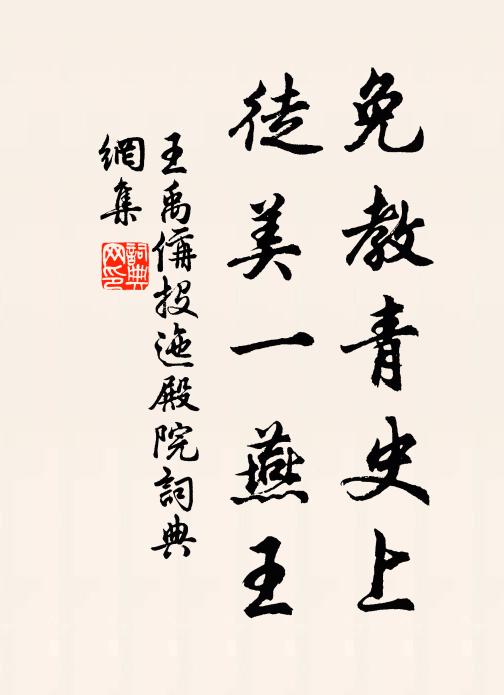 免教青史上
徒美一燕王
王禹偁投迤殿院詞典
網集
詞典
网印